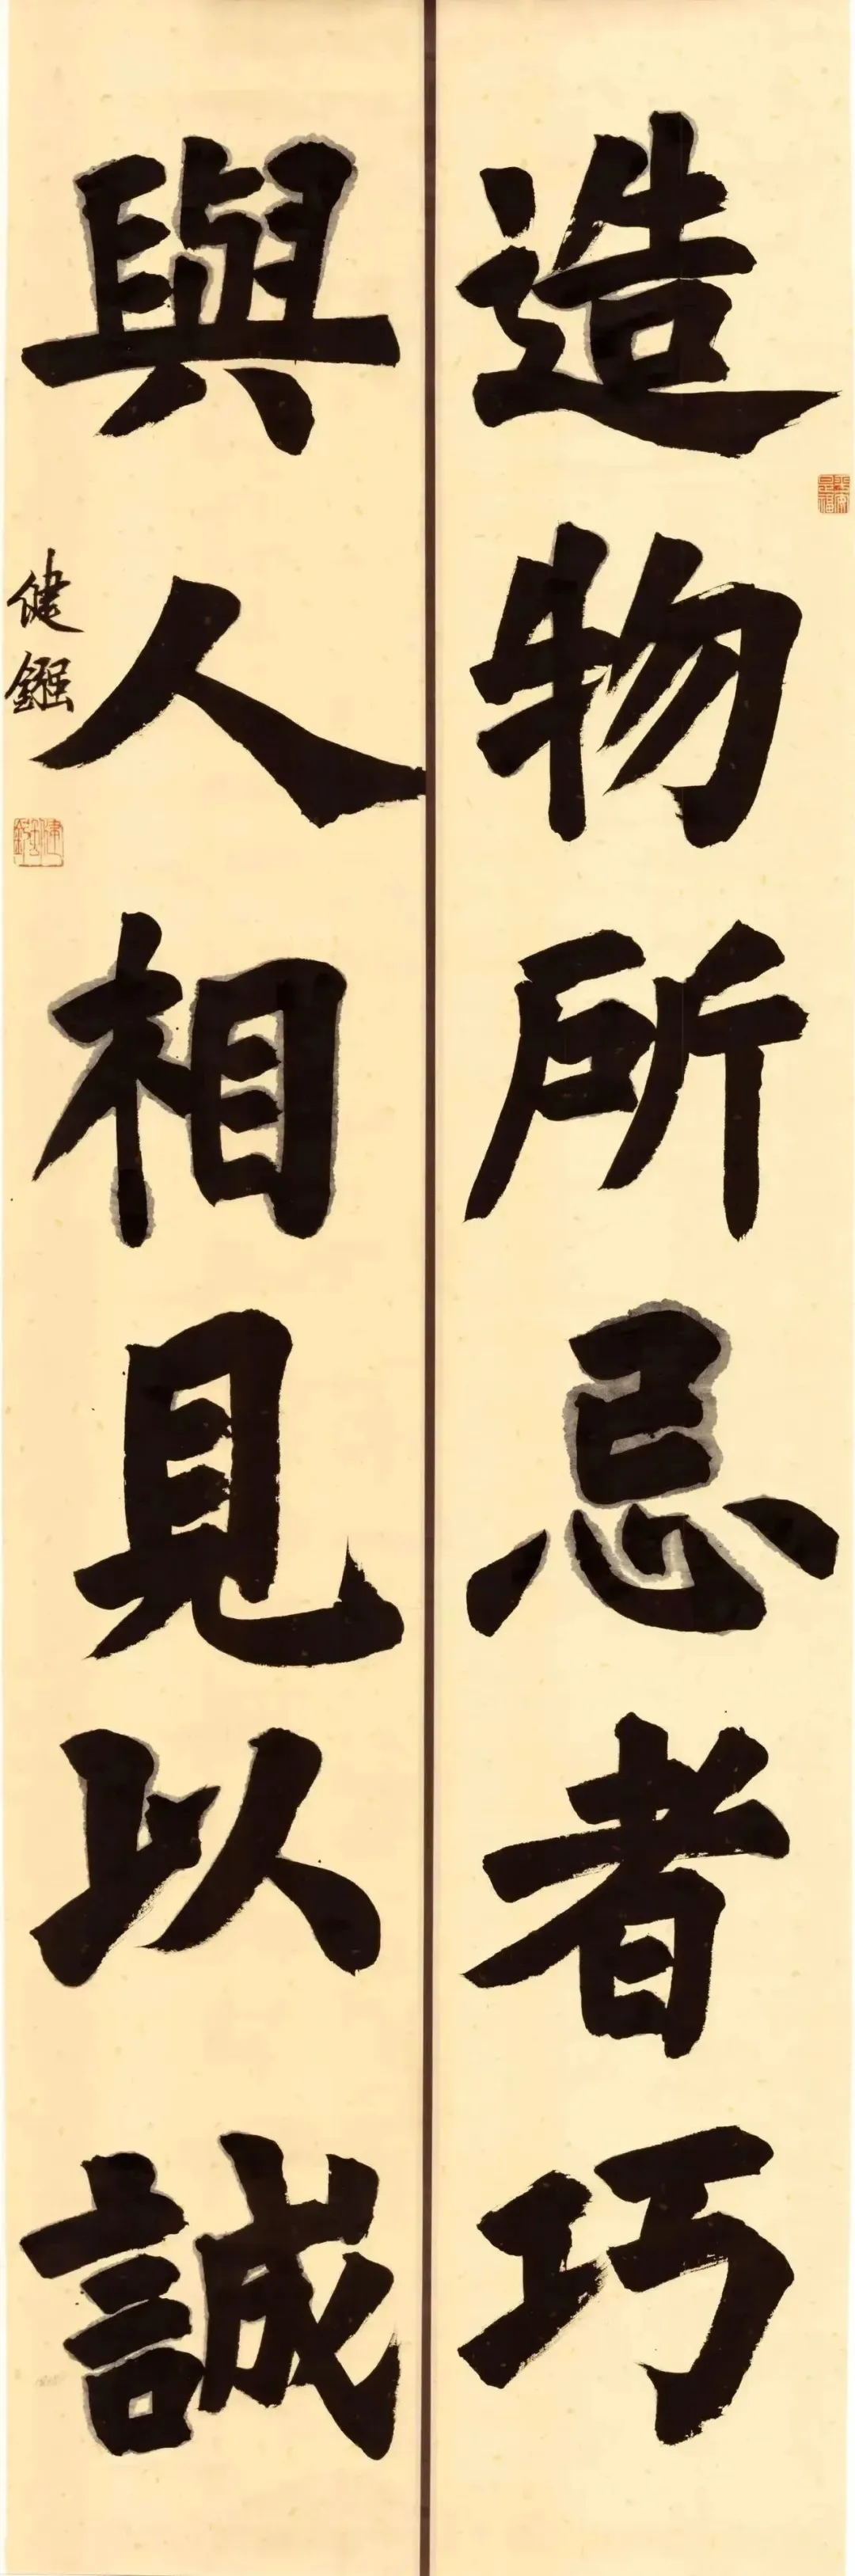 造物所忌者巧
與人相見以誠
健鏹